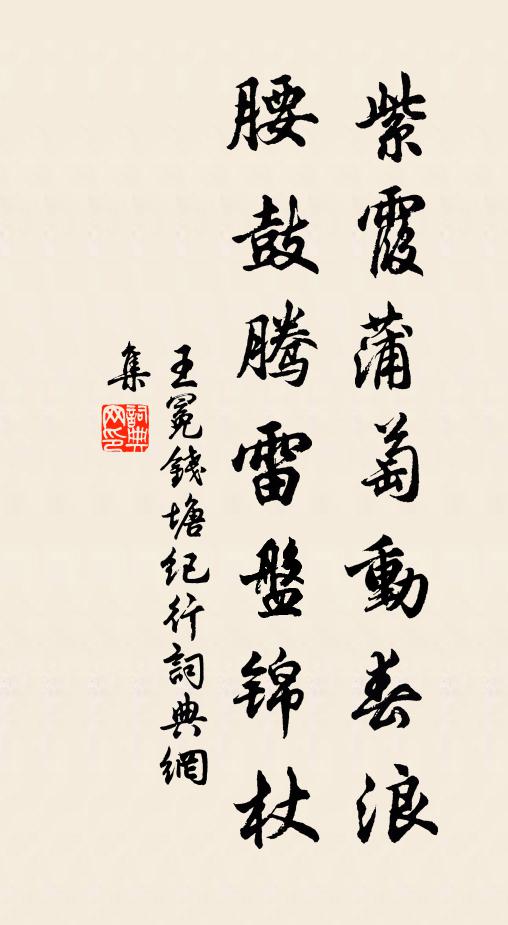 紫霞蒲萄動春浪
腰鼓騰雷盤錦杖
王冕錢塘紀行詞典網
集
詞典
网印